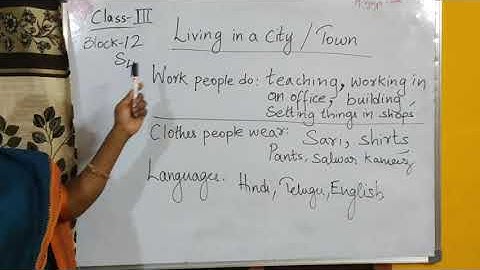 Class-III
Block-12
S4
Living in a City/Town
Work people do: teaching, working in
an office, building,
Selling things in shops
Clothes people wear: Sari, shirts
Pants, salwar kameez
Languages. Hindi, Telugu, English